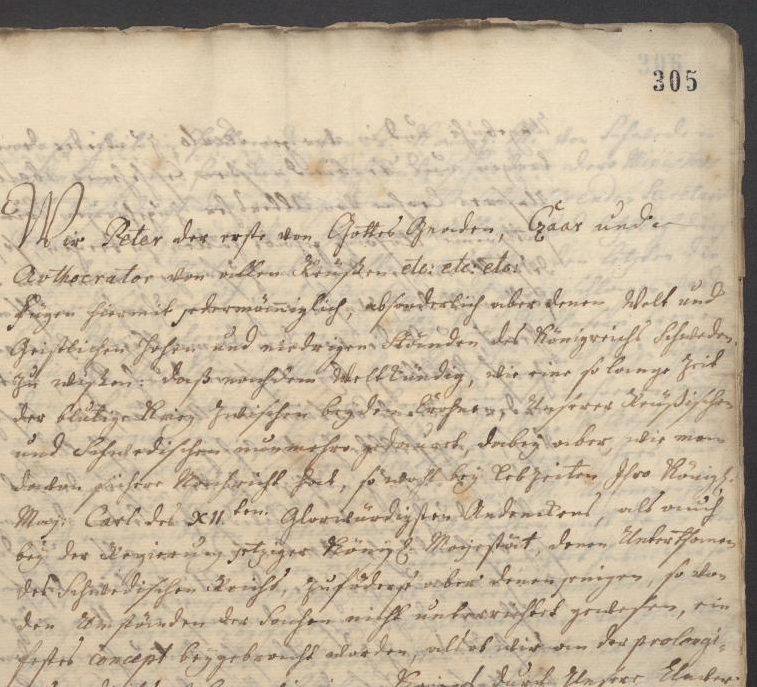 305
Wir Peter der erste von Gottes Gnaden, Czaar und
Avthocrator von allen Reüßen etc: etc: etc:
Fügen hiermit jedermänniglich, absonderlich aber denen Welt und
Geistlichen hohen und niedrigen Ständen des Königreichs Schweden,
zu wißen: daß nachdem Weltkündig, wie eine so lange Zeit
der blutige Krieg zwischen beyden Crohnen, Unserer Reüßischen
und Schwedischen nunmehro gedauret, dabey aber, wie man
davon sichere Nachricht hat, so wohl bey Lebzeiten Ihro Königl:
May: Carl des XII.ten. Glorwürdigsten Andenckens, als auch
bey der Regierung jetziger Königl. Majestät, denen Unterthanen
des Schwedischen Reichs, zuföderst aber denenjenigen, so von
den Umständen der Sachen nicht unterrichtet gewesen, ein
festes concept beygebracht worden, als ob wir an der prolongi-
durch Unsere